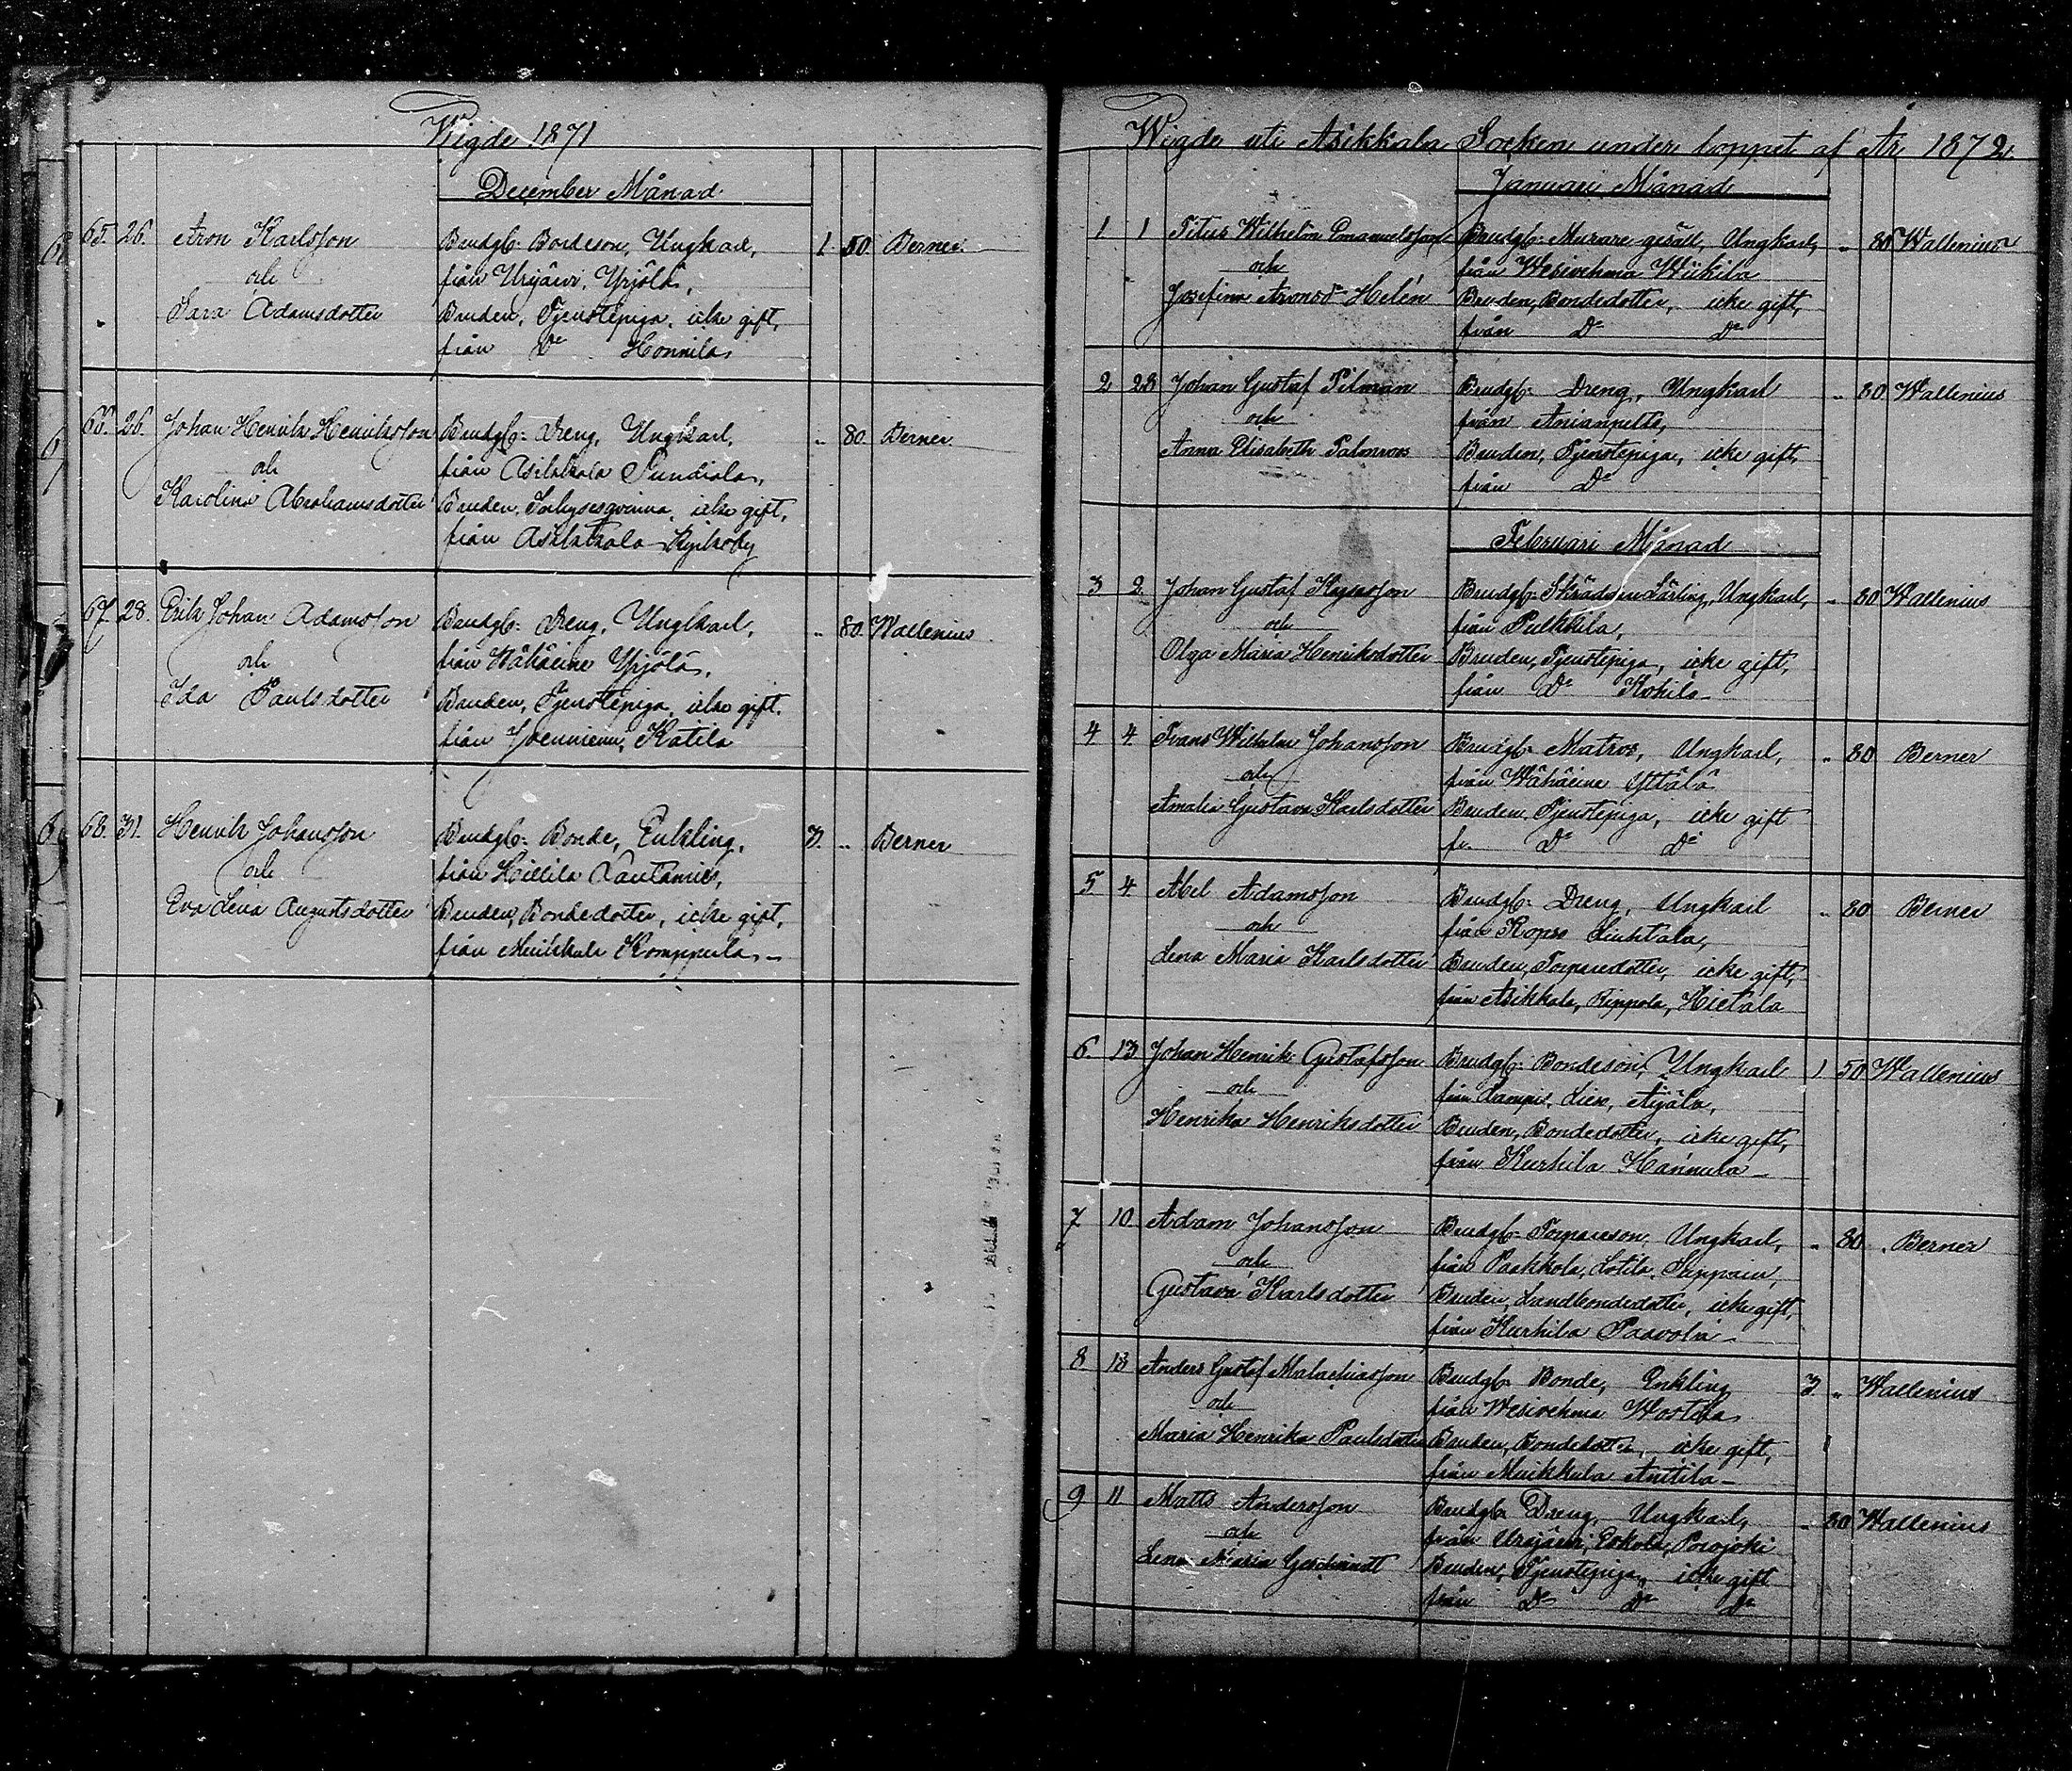 Wigde 1871
December Månad
65. 26. Aron Karlsson Brudg: Bondeson, Ungkarl, 1. 50. Berner.
och från Urajärvi, Yrjölä,
Sara Adamsdotter Bruden, Tjenstepiga, icke gift,
från Do Honnila
66. 26. Johan Henrik Henriksson Brudg: Dreng, Ungkarl, " 80. Berner
och från Asikkala
Karolina Abrahamsdotter Bruden, Inhysesqvinna, icke gift,
från Asikkala Kyrkoby
67. 28. Erik Johan Adamsson Brudg: Dreng, Ungkarl, " 80. Wallenius
och från Wähäeine Yrjölä,
Ida Paulsdotter Bruden, Tjenstepiga, icke gift.
från Katila
68. 31. Henrik Johansson Brudg: Bonde, Enkling, 3. " Berner
och från Hillilä Rautamies,
Eva Lena Augustsdotter Bruden, Bondedotter, icke gift,
från Muikkula Komppula
Wigde uti Asikkala Socken under loppet af År 1872.
Januari Månad
1 1 Titus Wilhelm Emanuelsson Brudg: Murare gesäll, Ungkarl, " 80 Wallenius
och från Wesivehma Wiikilä
Josefina Aronsdr Helén Bruden, Bondedotter, icke gift,
från Do Do
2 28 Johan Gustaf Pilman Brudg: Dreng, Ungkarl " 80 Wallenius
och från Anianpelto,
Anna Elisabeth Palmroos Bruden, Tjenstepiga, icke gift,
från Do
Februari Månad
3 2 Johan Gustaf Brudg: Skräddare Lärling, Ungkarl, " 80 Wallenius
och från Pulkkila,
Olga Maria Henriksdotter Bruden, Tjenstepiga, icke gift,
från Do Kokila
4 4 Frans Wilhelm Johansson Brudg: Matros, Ungkarl, " 80 Berner
och från Wähäeine
Amalia Gustava Karlsdotter Bruden, Tjenstepiga, icke gift
fr. Do Do
5 4 Abel Adamsson Brudg: Dreng, Ungkarl " 80 Berner
och från Kopso Liuhtala,
Lena Maria Karlsdotter Bruden, Torparedotter, icke gift,
från Asikkala, Rippola, Hietala
6. 13 Johan Henrik Gustafsson Brudg: Bondeson, Ungkarl 1 50 Wallenius
och från Lampis, Lieso, Äijälä,
Henrika Henriksdotter Bruden, Bondedotter, icke gift,
från Kurhila Hannula
7 10 Adam Johansson Brudg: Torpareson, Ungkarl, " 80 Berner
och från Paakkola, Lotila,
Gustava Karlsdotter Bruden, Landbondedotter, icke gift,
från Kurhila Paavola
8 18 Anders Gustaf Malachiasson Brudg: Bonde, Enkling 3 " Wallenius
och från Wesivehma
Maria Henrika Paulsdotter Bruden, Bondedotter, icke gift,
från Muikkula Anttila
9 11 Matts Andersson Brudg: Dreng, Ungkarl, " 80 Wallenius
och från Urajärvi, Eskola, Porojoki
Lena Maria Geschwindt Bruden, Tjenstepiga, icke gift
från Do Do Do